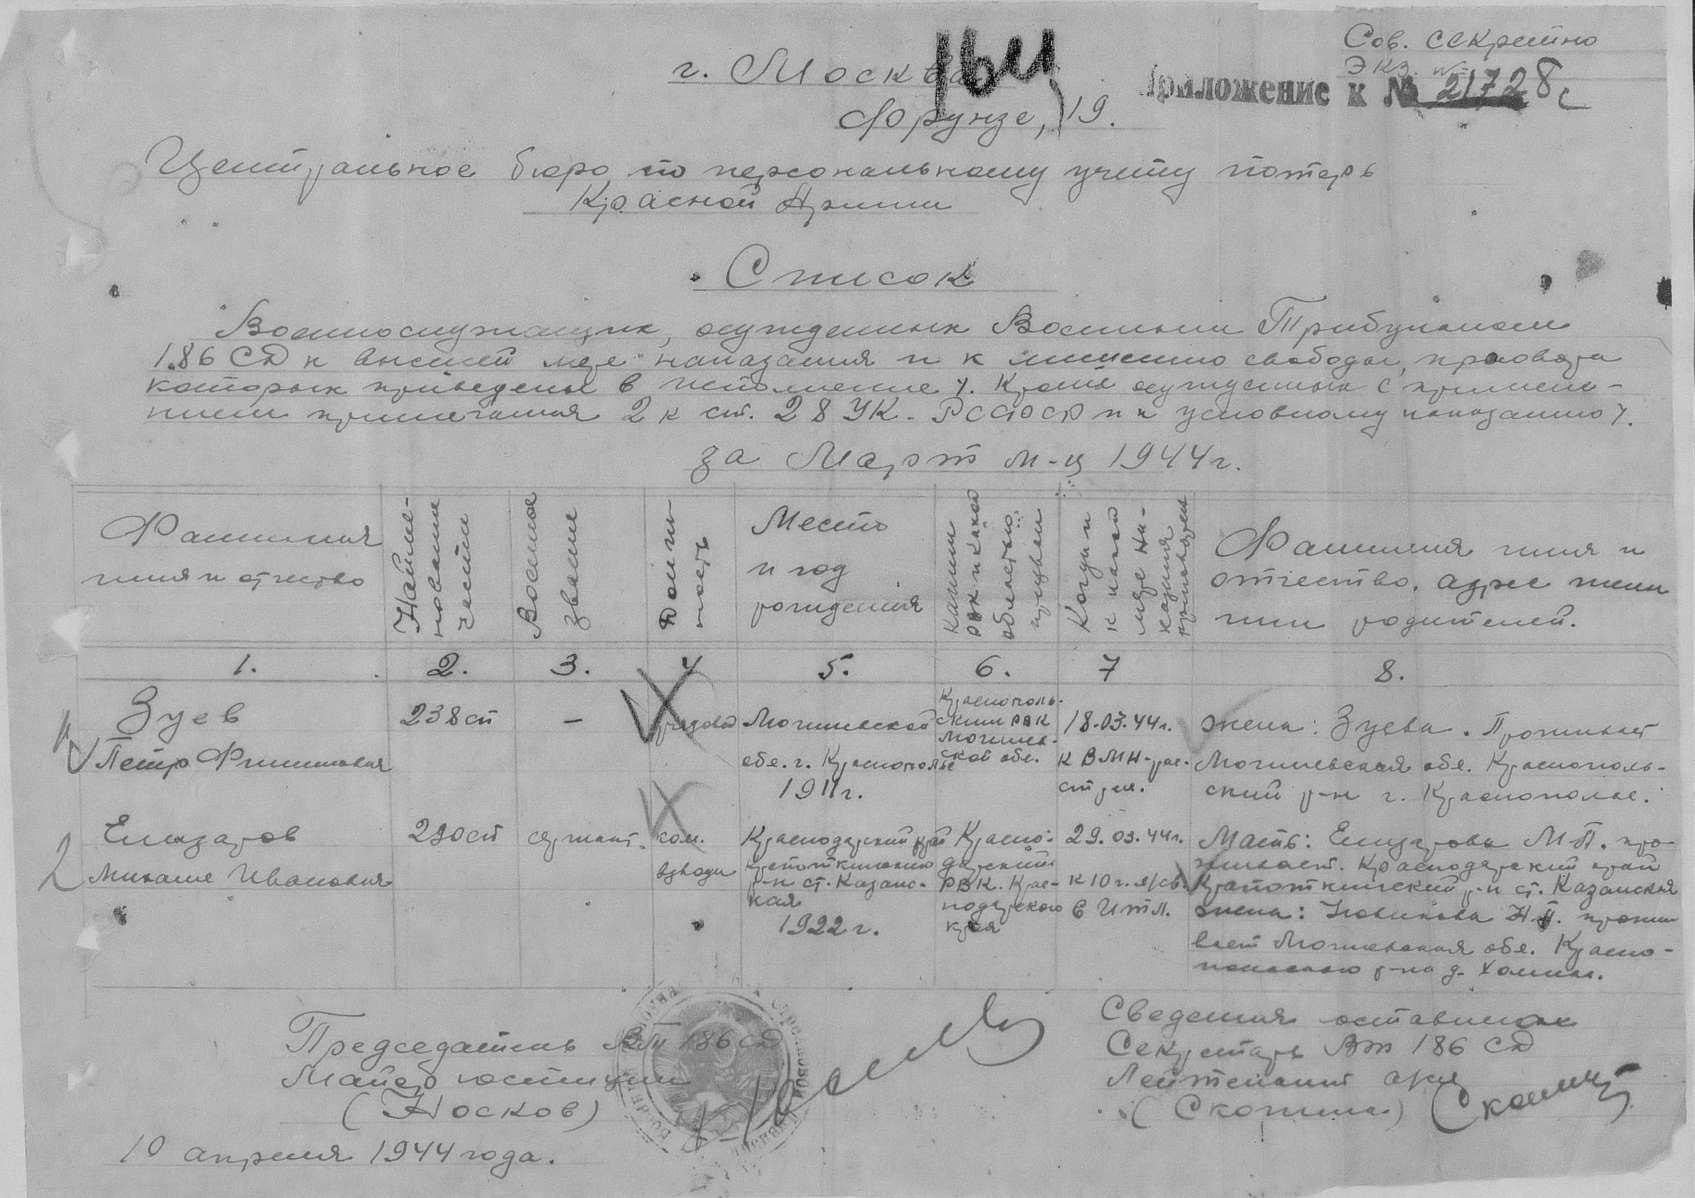 Сов. секретно
Экз. №
г. Москва
Приложение к № 21728с
Фрунзе, 19.
Центральное бюро по персональному учету потерь
Красной Армии
Список
Военнослужащих, осужденных Военным Трибуналом
186 СД к высшей мере наказания и к лишению свободы, приговора
которых приведены в исполнение /. Кроме осужденных с примене-
нием примечания 2 к ст. 28 УК-РСФСР и к условному наказанию/.
за Март м-ц 1944г.
Фамилия
имя и отчество
Наиме-
нование
части
Военное
звание
Долж-
ность
Место
и год
рождения
Каким
РВК и какой
областью
призван
Когда и
к какой
мере на-
казания
Фамилия имя и
отчество, адрес жены
или родителей.
1.
2.
3.
4
5.
6.
7
8.
1
Зуев
Петр Филиппович
238сп
—
рядовой
Могилевской
обл. г. Краснополье
1911г.
Краснополь-
ским РВК
Могилев-
ской обл.
18.03.44г.
к ВМН-рас-
стрел.
жена: Зуева. Проживает
Могилевская обл. Краснополь-
ский р-н г. Краснополье.
2
Елизаров
Михаил Иванович
290сп
сержант.
ком.
взвода
Краснодарский край
Кропоткинский
р-н ст. Казанс-
кая
1922г.
Красно-
дарским
РВК. Крас-
нодарского
края
29.03.44г.
к 10г. л/св.
в ИТЛ.
Мать: Елизарова М.П. про-
живает. Краснодарский край
Кропоткинский р-н ст. Казанская
жена: Новикова Н.П. прожи
вает Могилевская обл. Красно-
польского р-на д.
Председатель ВТ 186 СД
Майор юстиции
(Носков)
10 апреля 1944 года.
Сведения составил
Секретарь ВТ 186 СД
Лейтенант а/с
(Скопин)